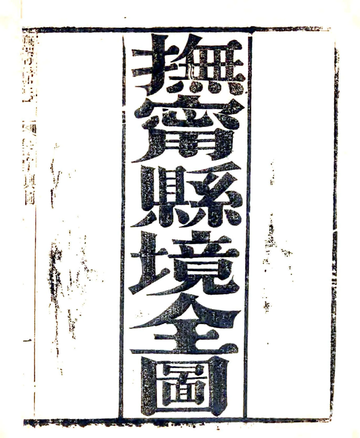 撫甯縣境全圖